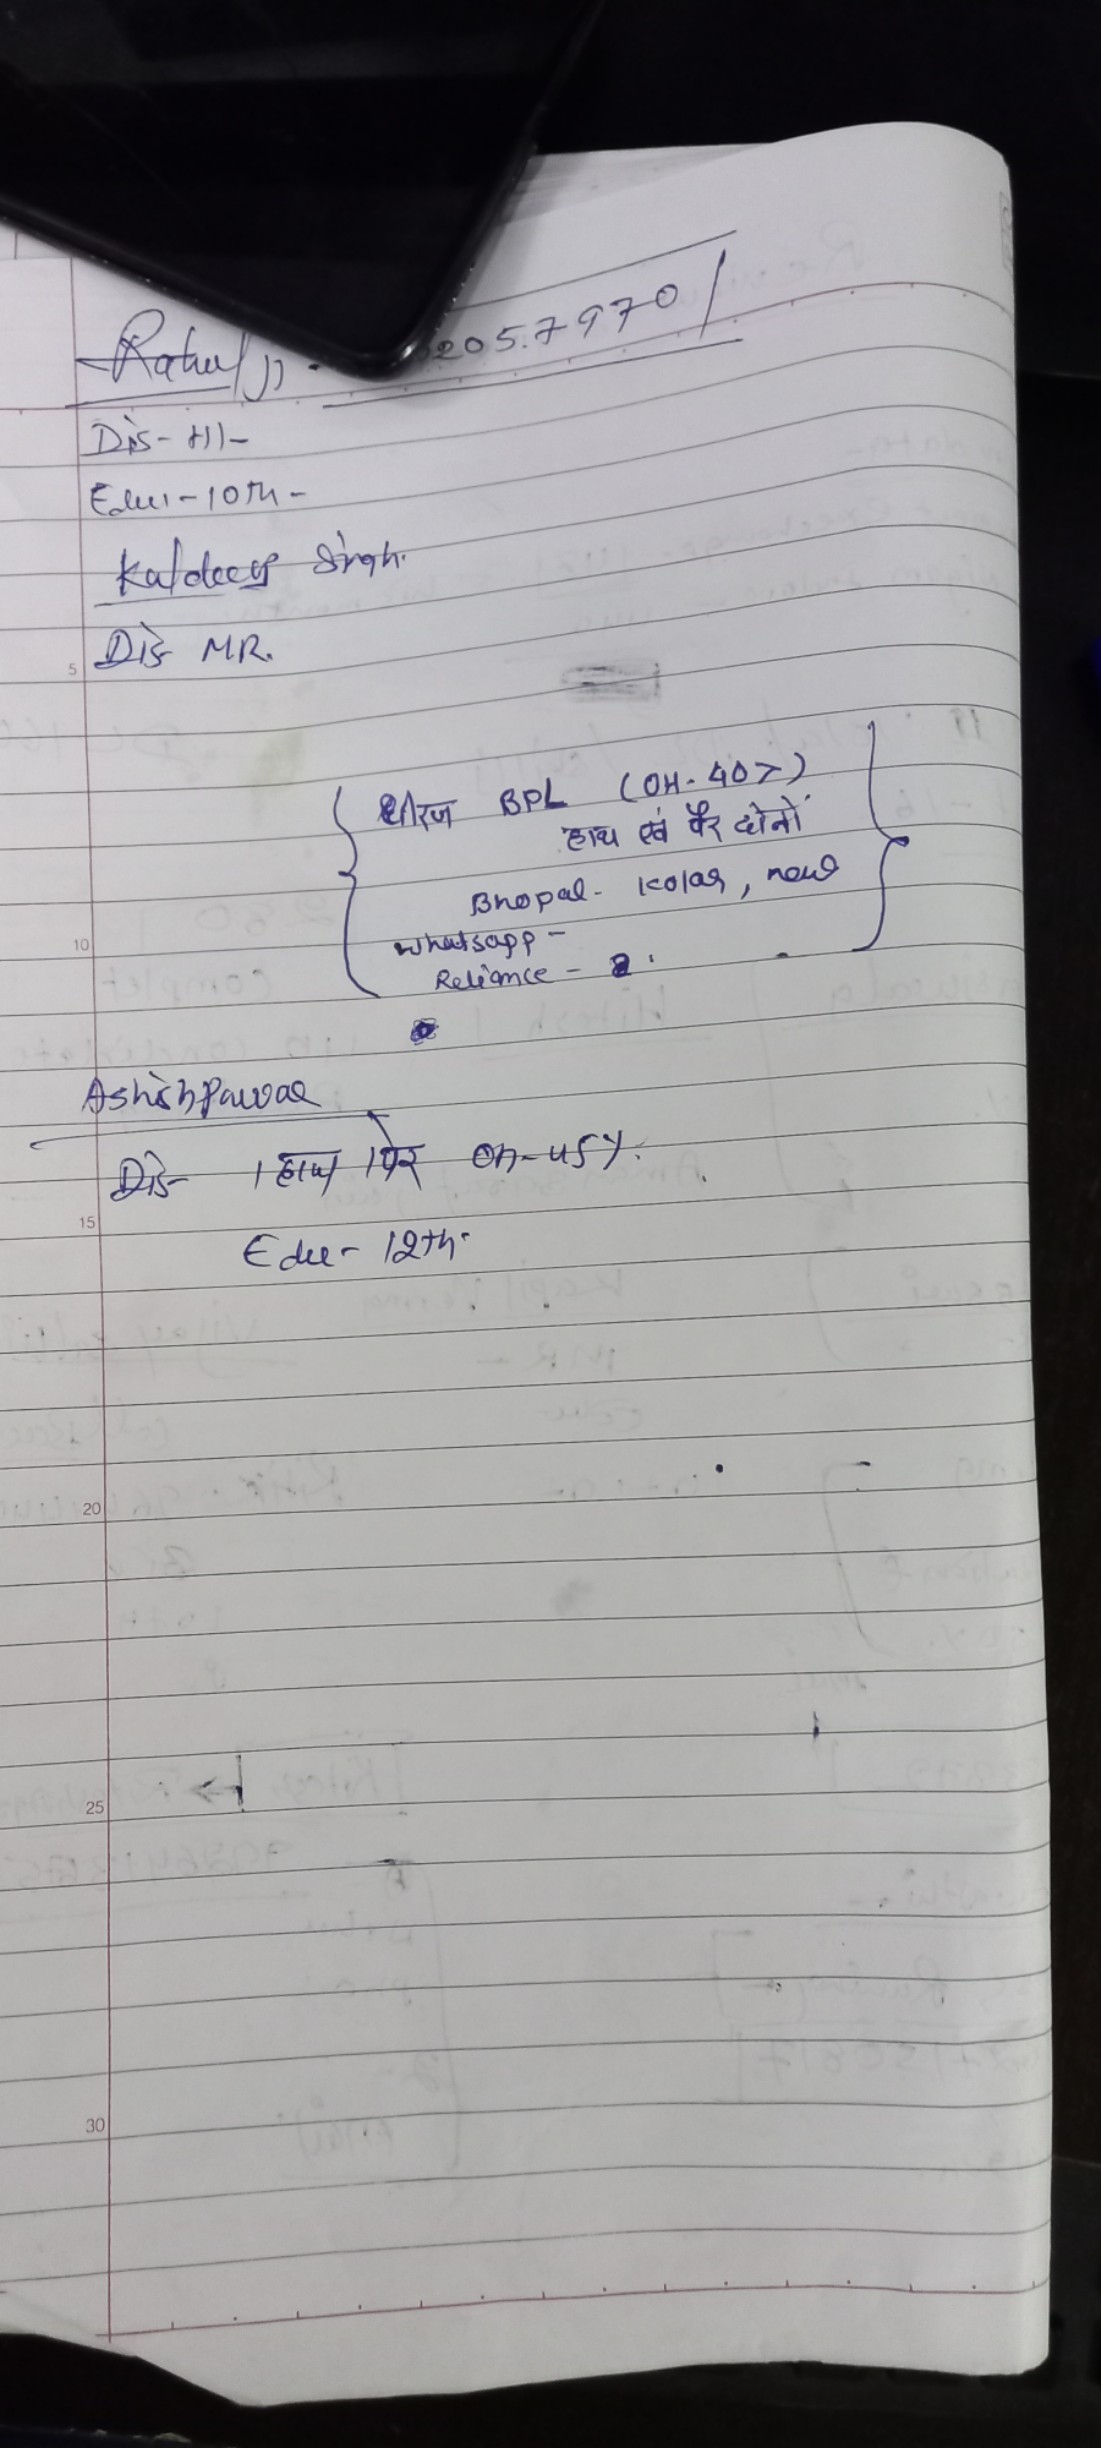 Rahul JJ - 205.7970
Dis- HI -
Edu - 10th -
Kaldeep Singh.
Dis- MR.
धीरज BPL (OH-40%)
हाथ एवं पैर दोनों
Bhopal - Kolar, news
Whatsapp -
Reliance - 2.
Ashish Pawar
Dis- 1 हाथ 1 पैर OH-45%.
Edu - 12th.
5
10
15
20
25
30